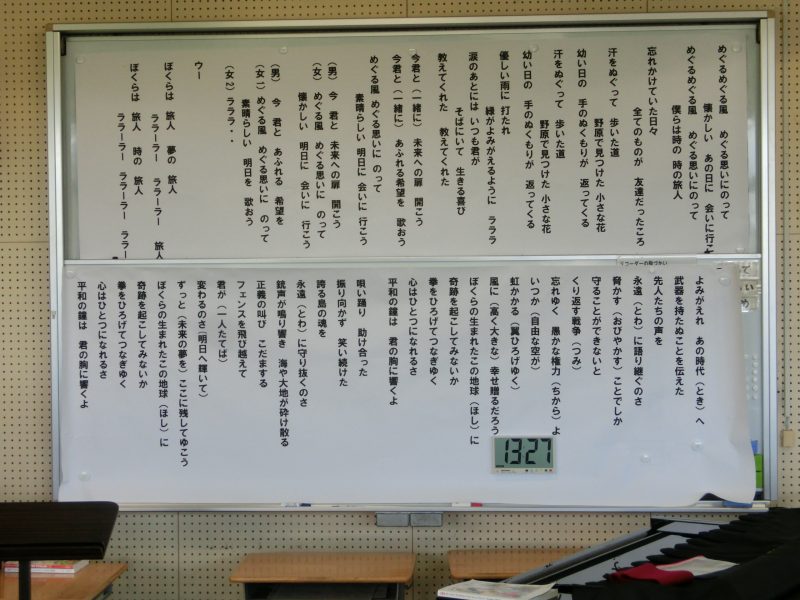 めぐるめぐる風　めぐる思いにのって
懐かしい　あの日に　会いに行こ
めぐるめぐる風　めぐる思いにのって
僕らは時の　時の旅人
忘れかけていた日々
全てのものが　友達だったころ
汗をぬぐって　歩いた道
野原で見つけた　小さな花
幼い日の　手のぬくもりが　返ってくる
汗をぬぐって　歩いた道
野原で見つけた　小さな花
幼い日の　手のぬくもりが　返ってくる
優しい雨に　打たれ
緑がよみがえるように　ラララ
涙のあとには　いつも君が
そばにいて　生きる喜び
教えてくれた　教えてくれた
今君と（一緒に）未来への扉　開こう
今君と（一緒に）あふれる希望を　歌おう
めぐる風　めぐる思いに　のって
素晴らしい　明日に　会いに　行こう
（男）今　君と　未来への扉　開こう
（女）めぐる風　めぐる思いに　のって
懐かしい　明日に　会いに　行こう
（男）今　君と　あふれる　希望を
（女１）めぐる風　めぐる思いに　のって
素晴らしい　明日を　歌おう
（女２）ラララ・・
ウー
ぼくらは　旅人　夢の　旅人
ララーラー　ララーラー　旅人
ぼくらは　旅人　時の　旅人
ララーラー　ララーラー　ララー
リコーダーの取づかい
よみがえれ　あの時代（とき）へ
武器を持たぬことを伝えた
先人たちの声を
永遠（とわ）に語り継ぐのさ
脅かす（おびやかす）ことでしか
守ることができないと
くり返す戦争（つみ）
忘れゆく　愚かな権力（ちから）よ
いつか（自由な空が）
虹かかる（翼ひろげゆく）
風に（高く大きな）幸せ贈るだろう
ぼくらの生まれたこの地球（ほし）に
奇跡を起こしてみないか
拳をひろげてつなぎゆく
心はひとつになれるさ
平和の鐘は　君の胸に響くよ
唄い踊り　助け合った
振り向かず　笑い続けた
誇る島の魂を
永遠（とわ）に守り抜くのさ
銃声が鳴り響き　海や大地が砕け散る
正義の叫び　こだまする
フェンスを飛び越えて
君が（一人たてば）
変わるのさ（明日へ輝いて）
ずっと（未来の夢を）ここに残してゆこう
ぼくらの生まれたこの地球（ほし）に
奇跡を起こしてみないか
拳をひろげてつなぎゆく
心はひとつになれるさ
平和の鐘は　君の胸に響くよ
1327